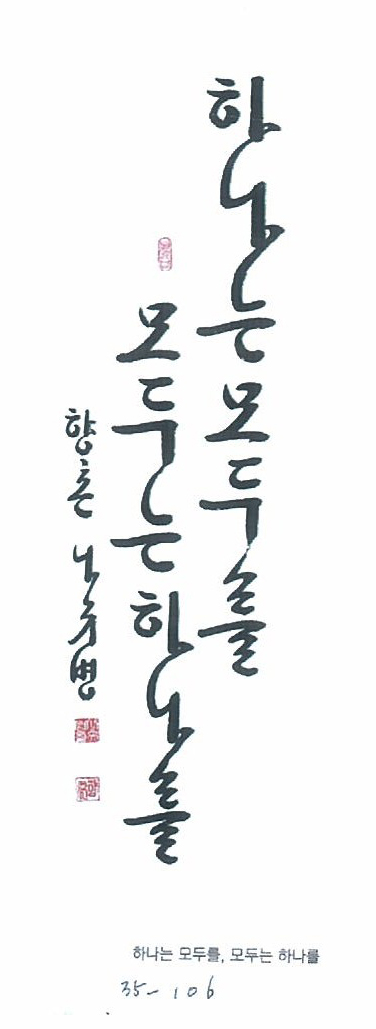 하나는 모두를
모두는 하나를
하나는 모두를, 모두는 하나를
35-106